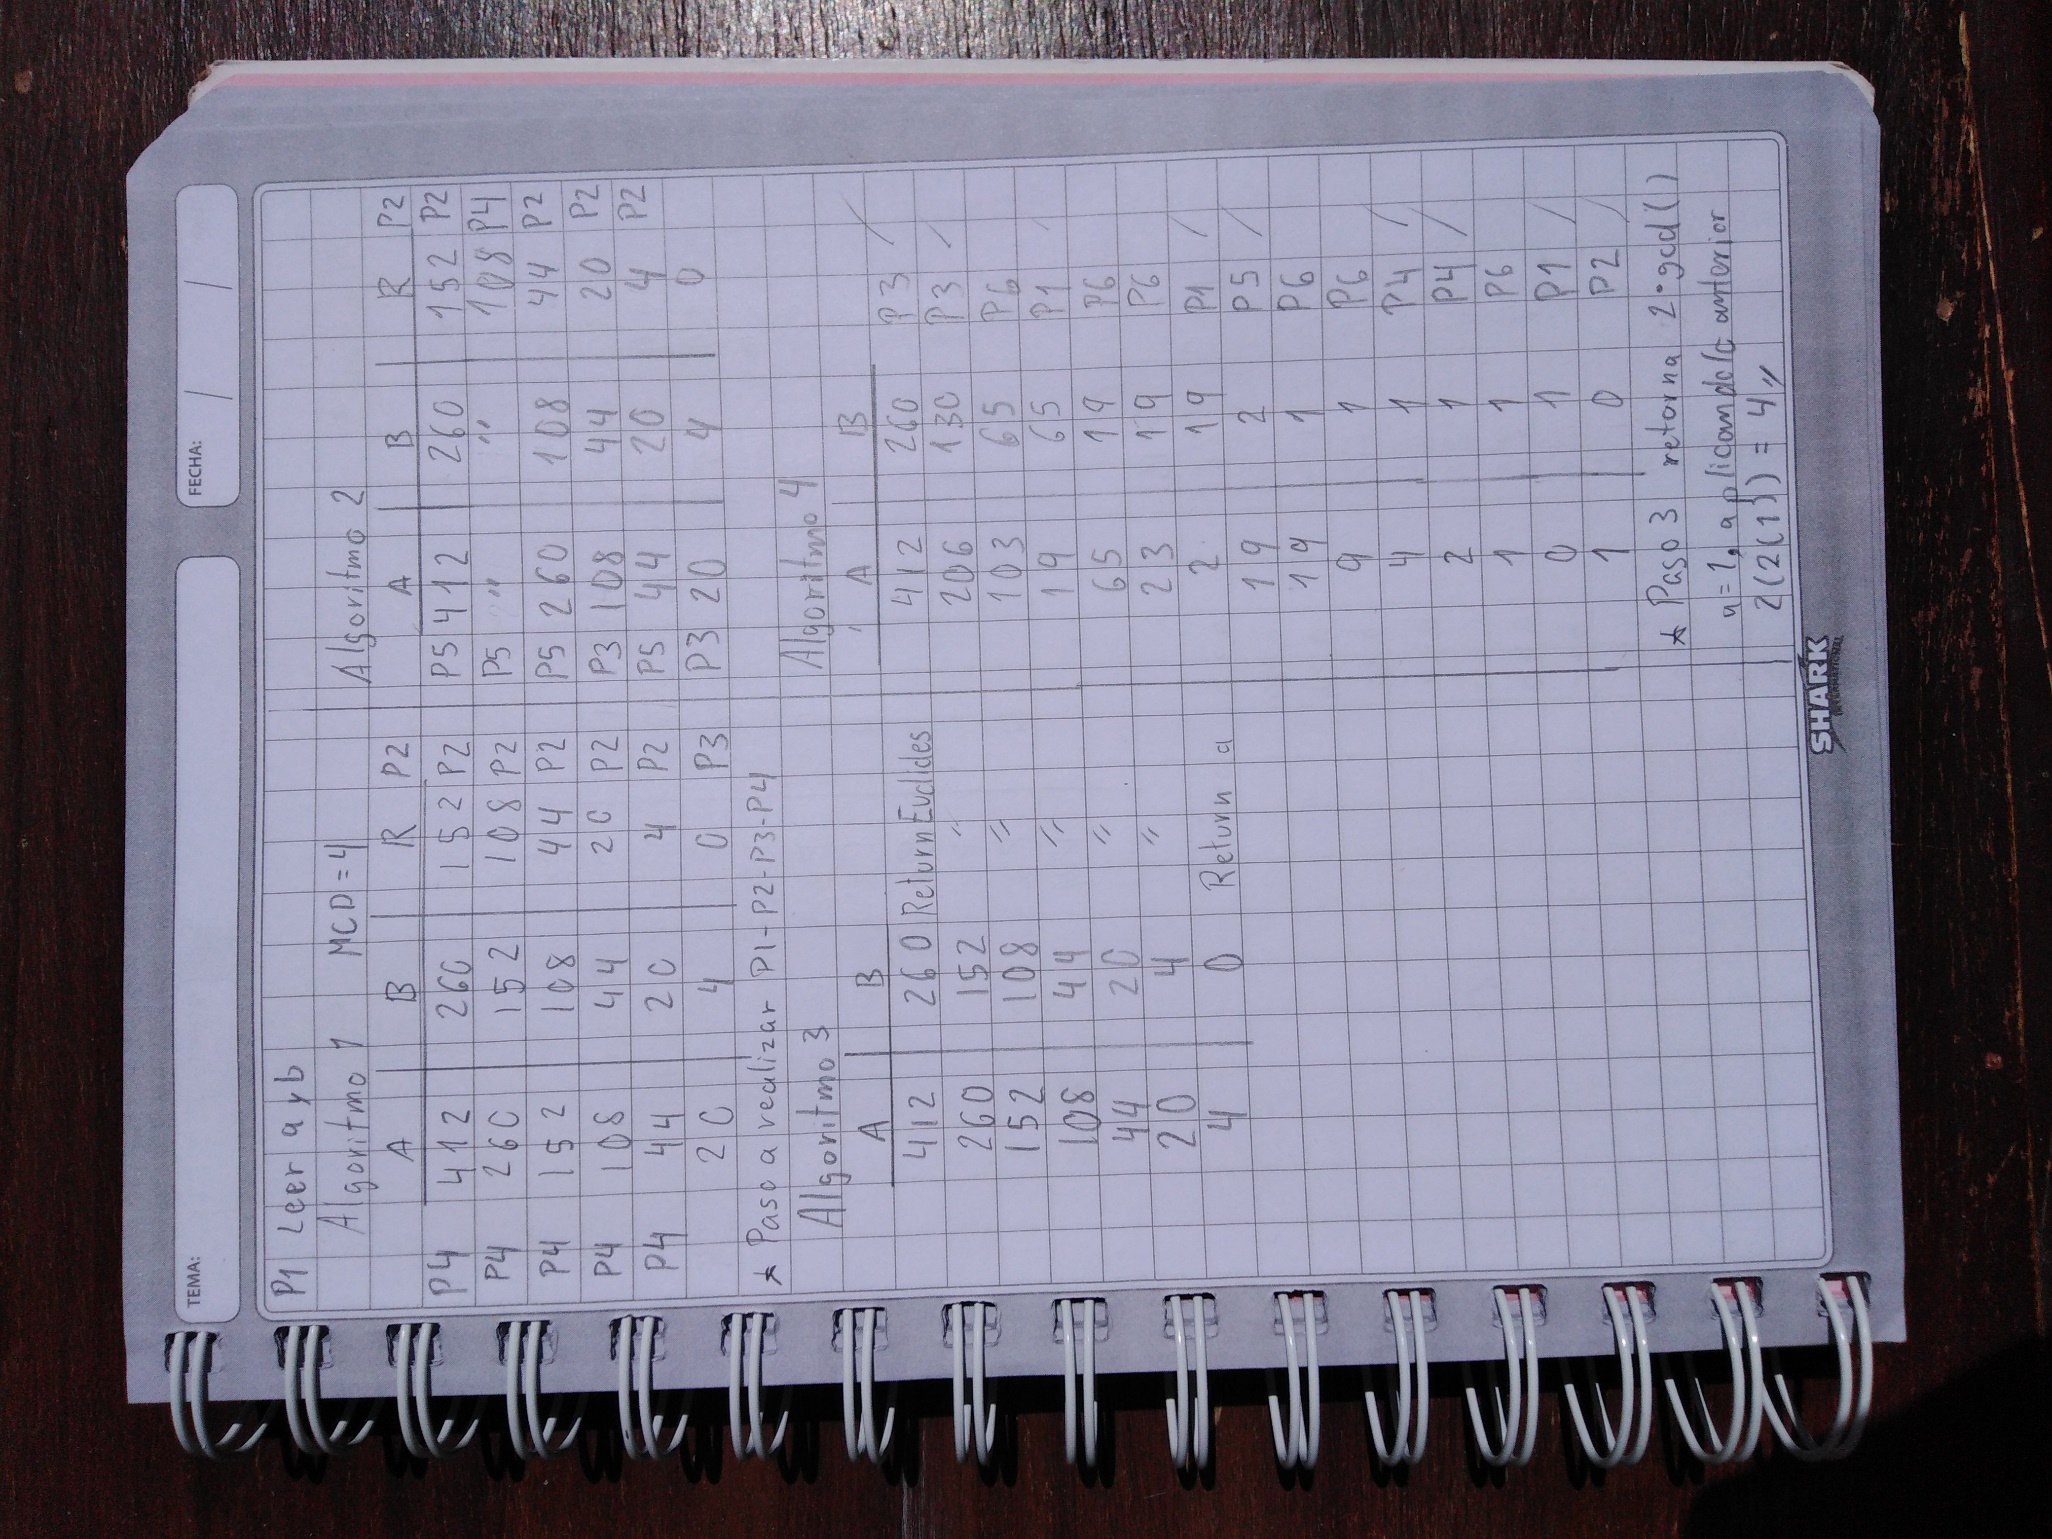 TEMA:
FECHA: / /
P1 Leer a y b
Algoritmo 1 MCD=4
A B R P2
P4 412 260 152 P2
P4 260 152 108 P2
P4 152 108 44 P2
P4 108 44 20 P2
P4 44 20 4 P2
20 4 0 P3
* Paso a realizar P1-P2-P3-P4
Algoritmo 2
A B R P2
P5 412 260 152 P2
P5 " " 108 P4
P5 260 108 44 P2
P3 108 44 20 P2
P5 44 20 4 P2
P3 20 4 0
Algoritmo 3
A B
412 260 Return Euclides
260 152 "
152 108 "
108 44 "
44 20 "
20 4 "
4 0 Return a
Algoritmo 4
A B
412 260 P3 /
206 130 P3 /
103 65 P6
19 65 P1 /
65 19 P6
23 19 P6
2 19 P1 /
19 2 P5 /
19 1 P6
9 1 P6
4 1 P4 /
2 1 P4 /
1 1 P6
0 1 P1 /
1 0 P2 /
* Paso 3 retorna 2*gcd()
n=2, aplicando lo anterior
2(2(1)) = 4"
SHARK